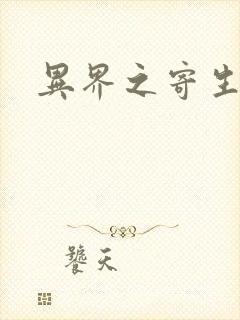 異界之寄生
饕天